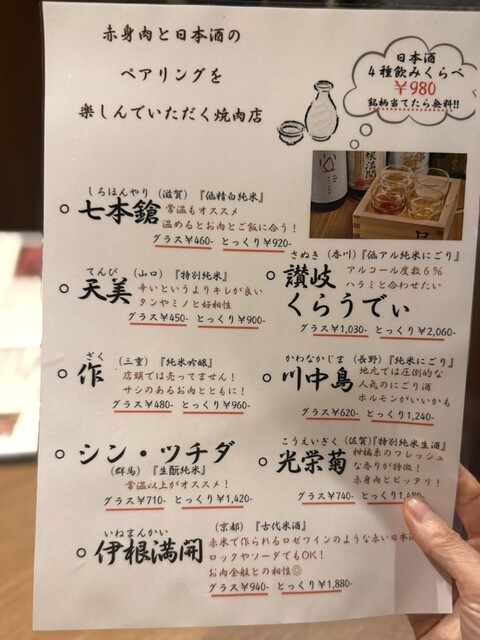 赤身肉と日本酒の
ペアリングを
楽しんでいただく焼肉店
日本酒
4種飲みくらべ
￥980
銘柄当てたら無料!!
しちほんやり (滋賀) 『低精白純米』
七本鎗
常温もオススメ
温めるとお肉とご飯に合う！
グラス￥460- とっくり￥920-
てんび (山口) 『特別純米』
天美
辛いというよりキレが良い
タンやミノと好相性
グラス￥450- とっくり￥900-
ざく (三重) 『純米吟醸』
作
店頭では売ってません！
サシのあるお肉とともに！
グラス￥480- とっくり￥960-
シン・ツチダ
(群馬) 『生酛純米』
常温以上がオススメ！
グラス￥710- とっくり￥1,420-
さぬき (香川) 『低アル純米にごり』
讃岐
くらうでぃ
アルコール度数6％
ハラミと合わせたい
グラス￥1,030- とっくり￥2,060-
かわなかじま (長野) 『純米にごり』
川中島
地元では圧倒的な
人気のにごり酒
ホルモンがいいかも
グラス￥620- とっくり1,240-
こうえいぎく (佐賀)『特別純米生酒』
光栄菊
柑橘系のフレッシュ
な香りが特徴！
赤身肉とピッタリ！
グラス￥740- とっくり1,480-
いねまんかい (京都) 『古代米酒』
伊根満開
赤米で作られるロゼワインのような赤い日本酒
ロックやソーダでもOK！
お肉全般との相性◎
グラス￥940- とっくり￥1,880-